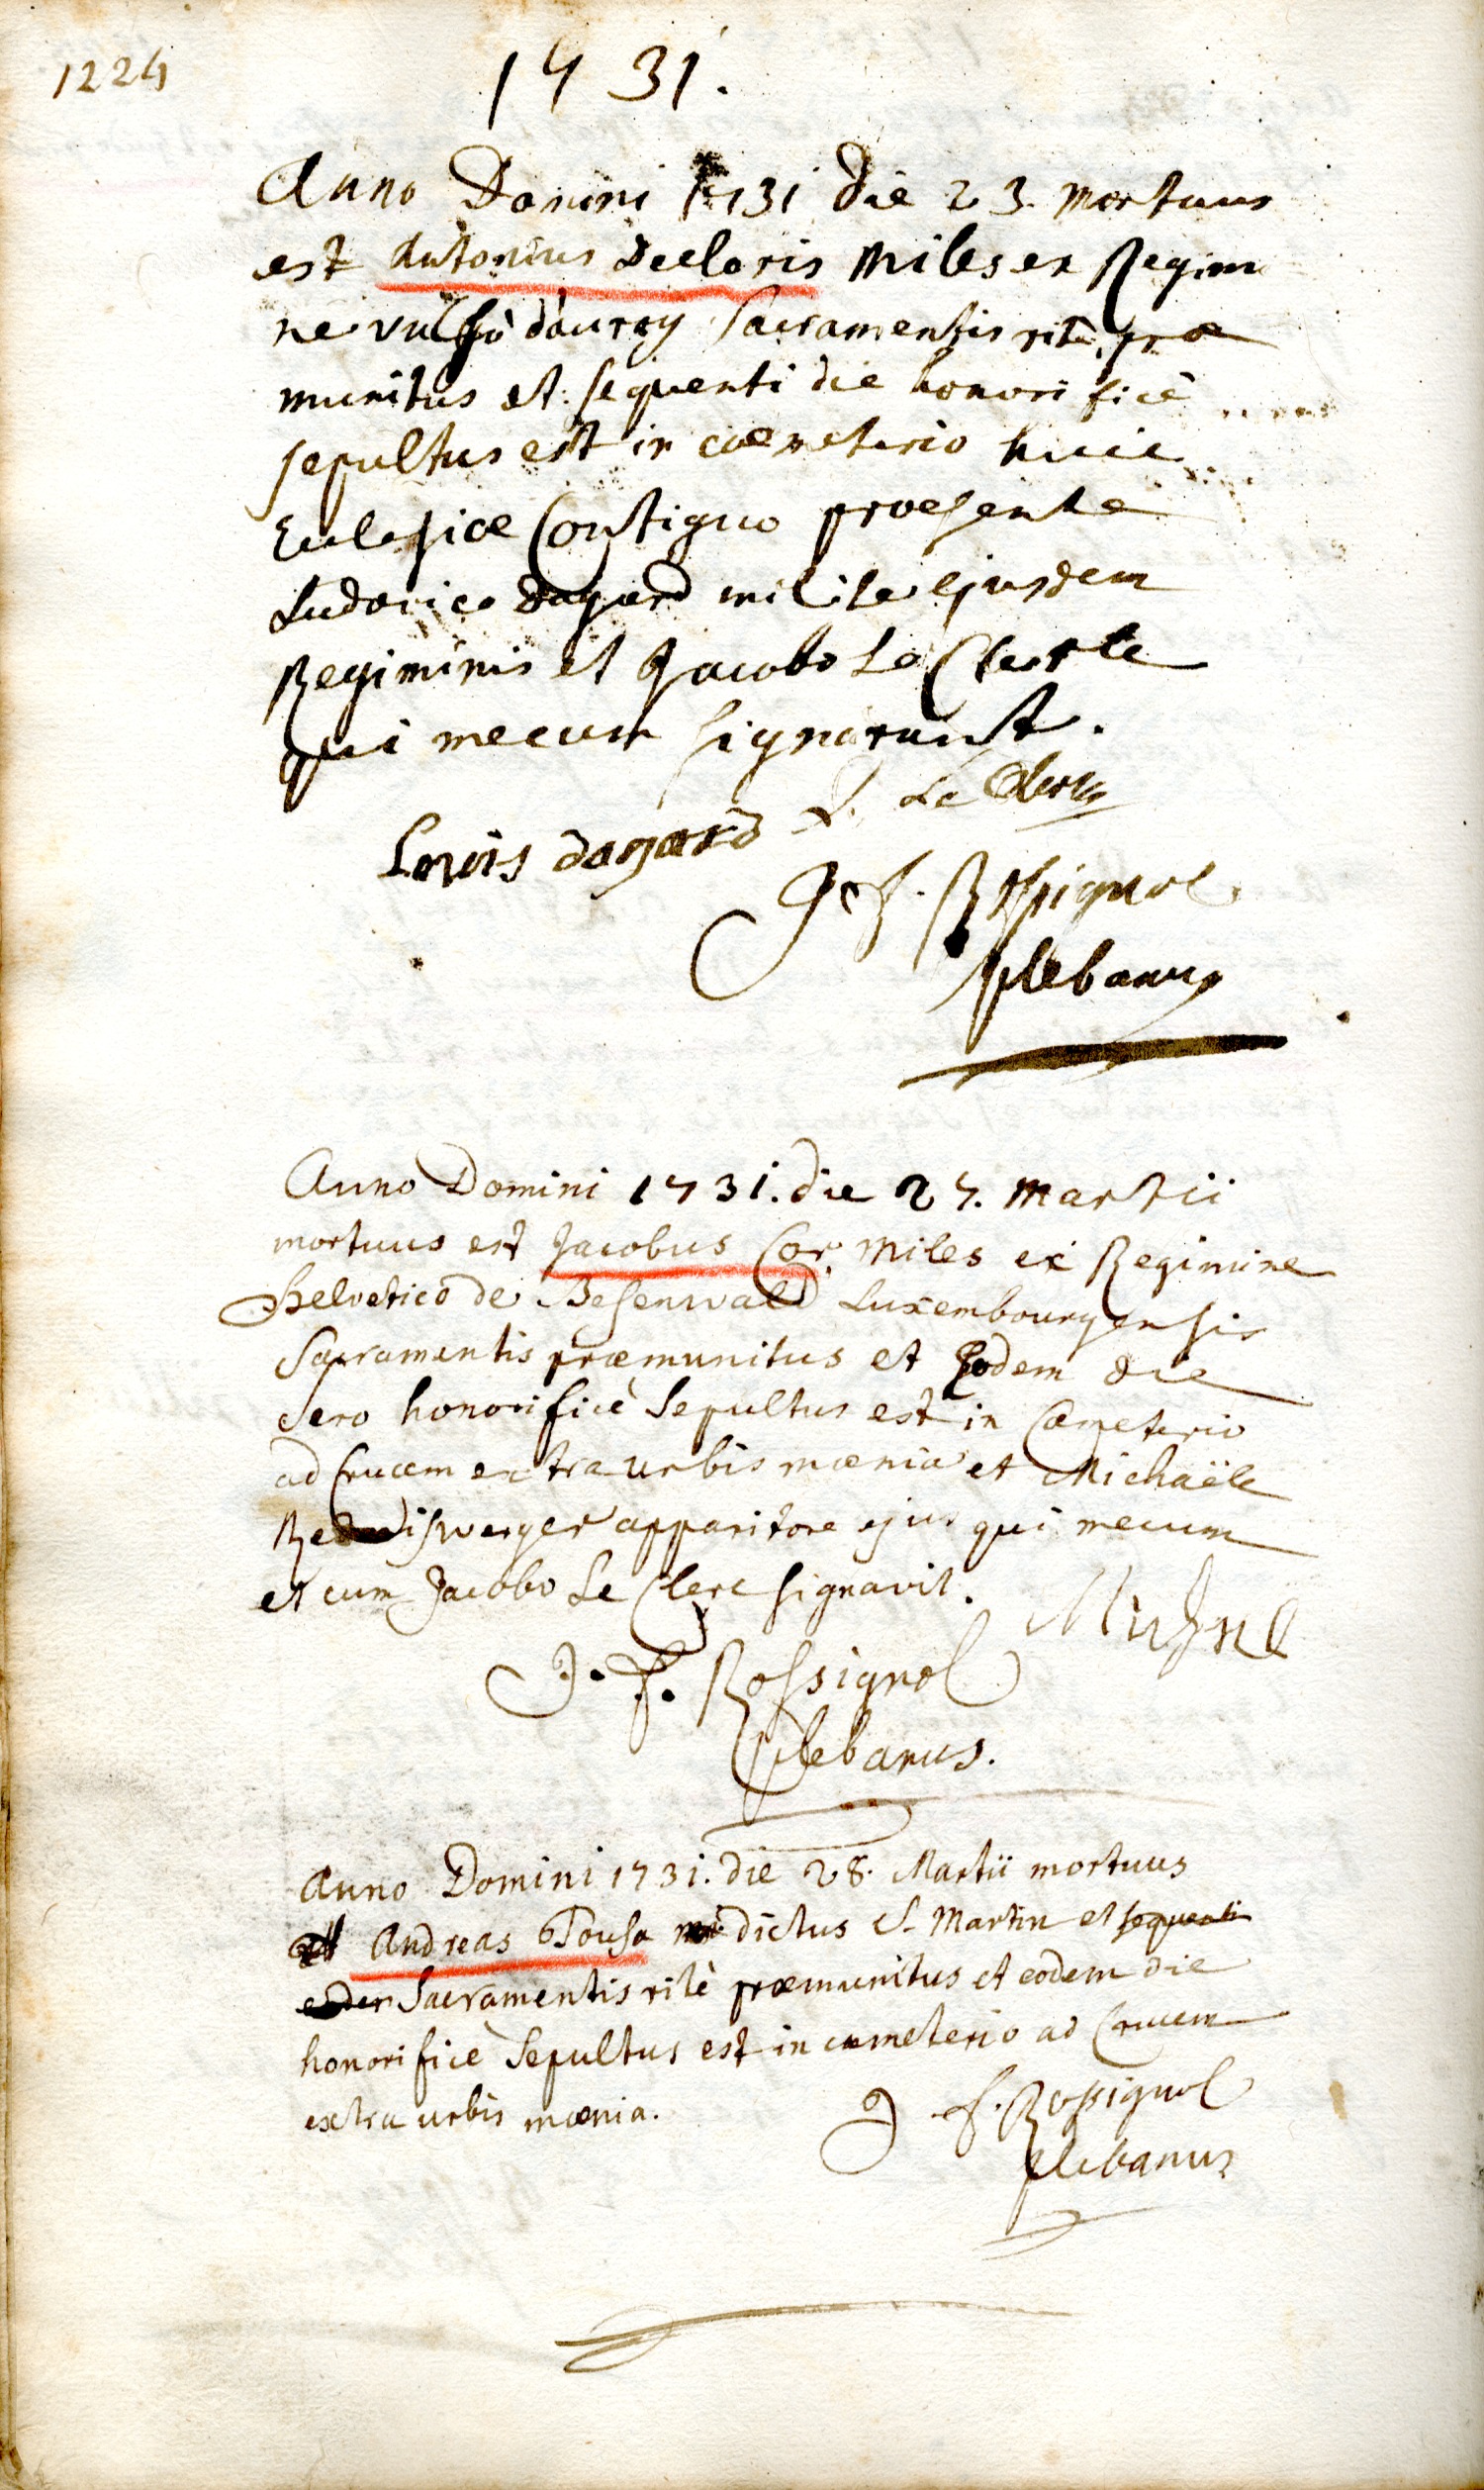 1224
1731.
Anno Domini 1731 die 23. mortuus
est Antonius Decloris Miles ex Regimi
ne vulgò dauroy Sacramentis ritè præ
munitus et sequenti die honorificè
sepultus est in cœmeterio huic
Ecclesiæ Contiguo præsente
Ludovico dagard milite ejusdem
Regiminis et Jacobo Le Clerc
qui mecum signarunt.
Louis dagard J. Le Clerc
J. f. Rossignol
plebanus
Anno Domini 1731. die 27. martii
mortuus est Jacobus Cor, Miles ex Regimine
helvetico de Besenwald Luxembourgensis
Sacramentis præmunitus et Eodem die
Sero honorificè Sepultus est in Cæmeterio
ad Crucem extra urbis mœnia et Michaële
apparitore ejus qui mecum
et cum Jacobo Le Clerc signavit.
J. f. Rossignol
plebanus.
Anno Domini 1731. die 28. Martii mortuus
est Andreas Tousa dictus S. Martin et sequenti
Sacramentis ritè præmunitus et eodem die
honorificè Sepultus est in cæmeterio ad Crucem
extra urbis mœnia.
J. f. Rossignol
plebanus